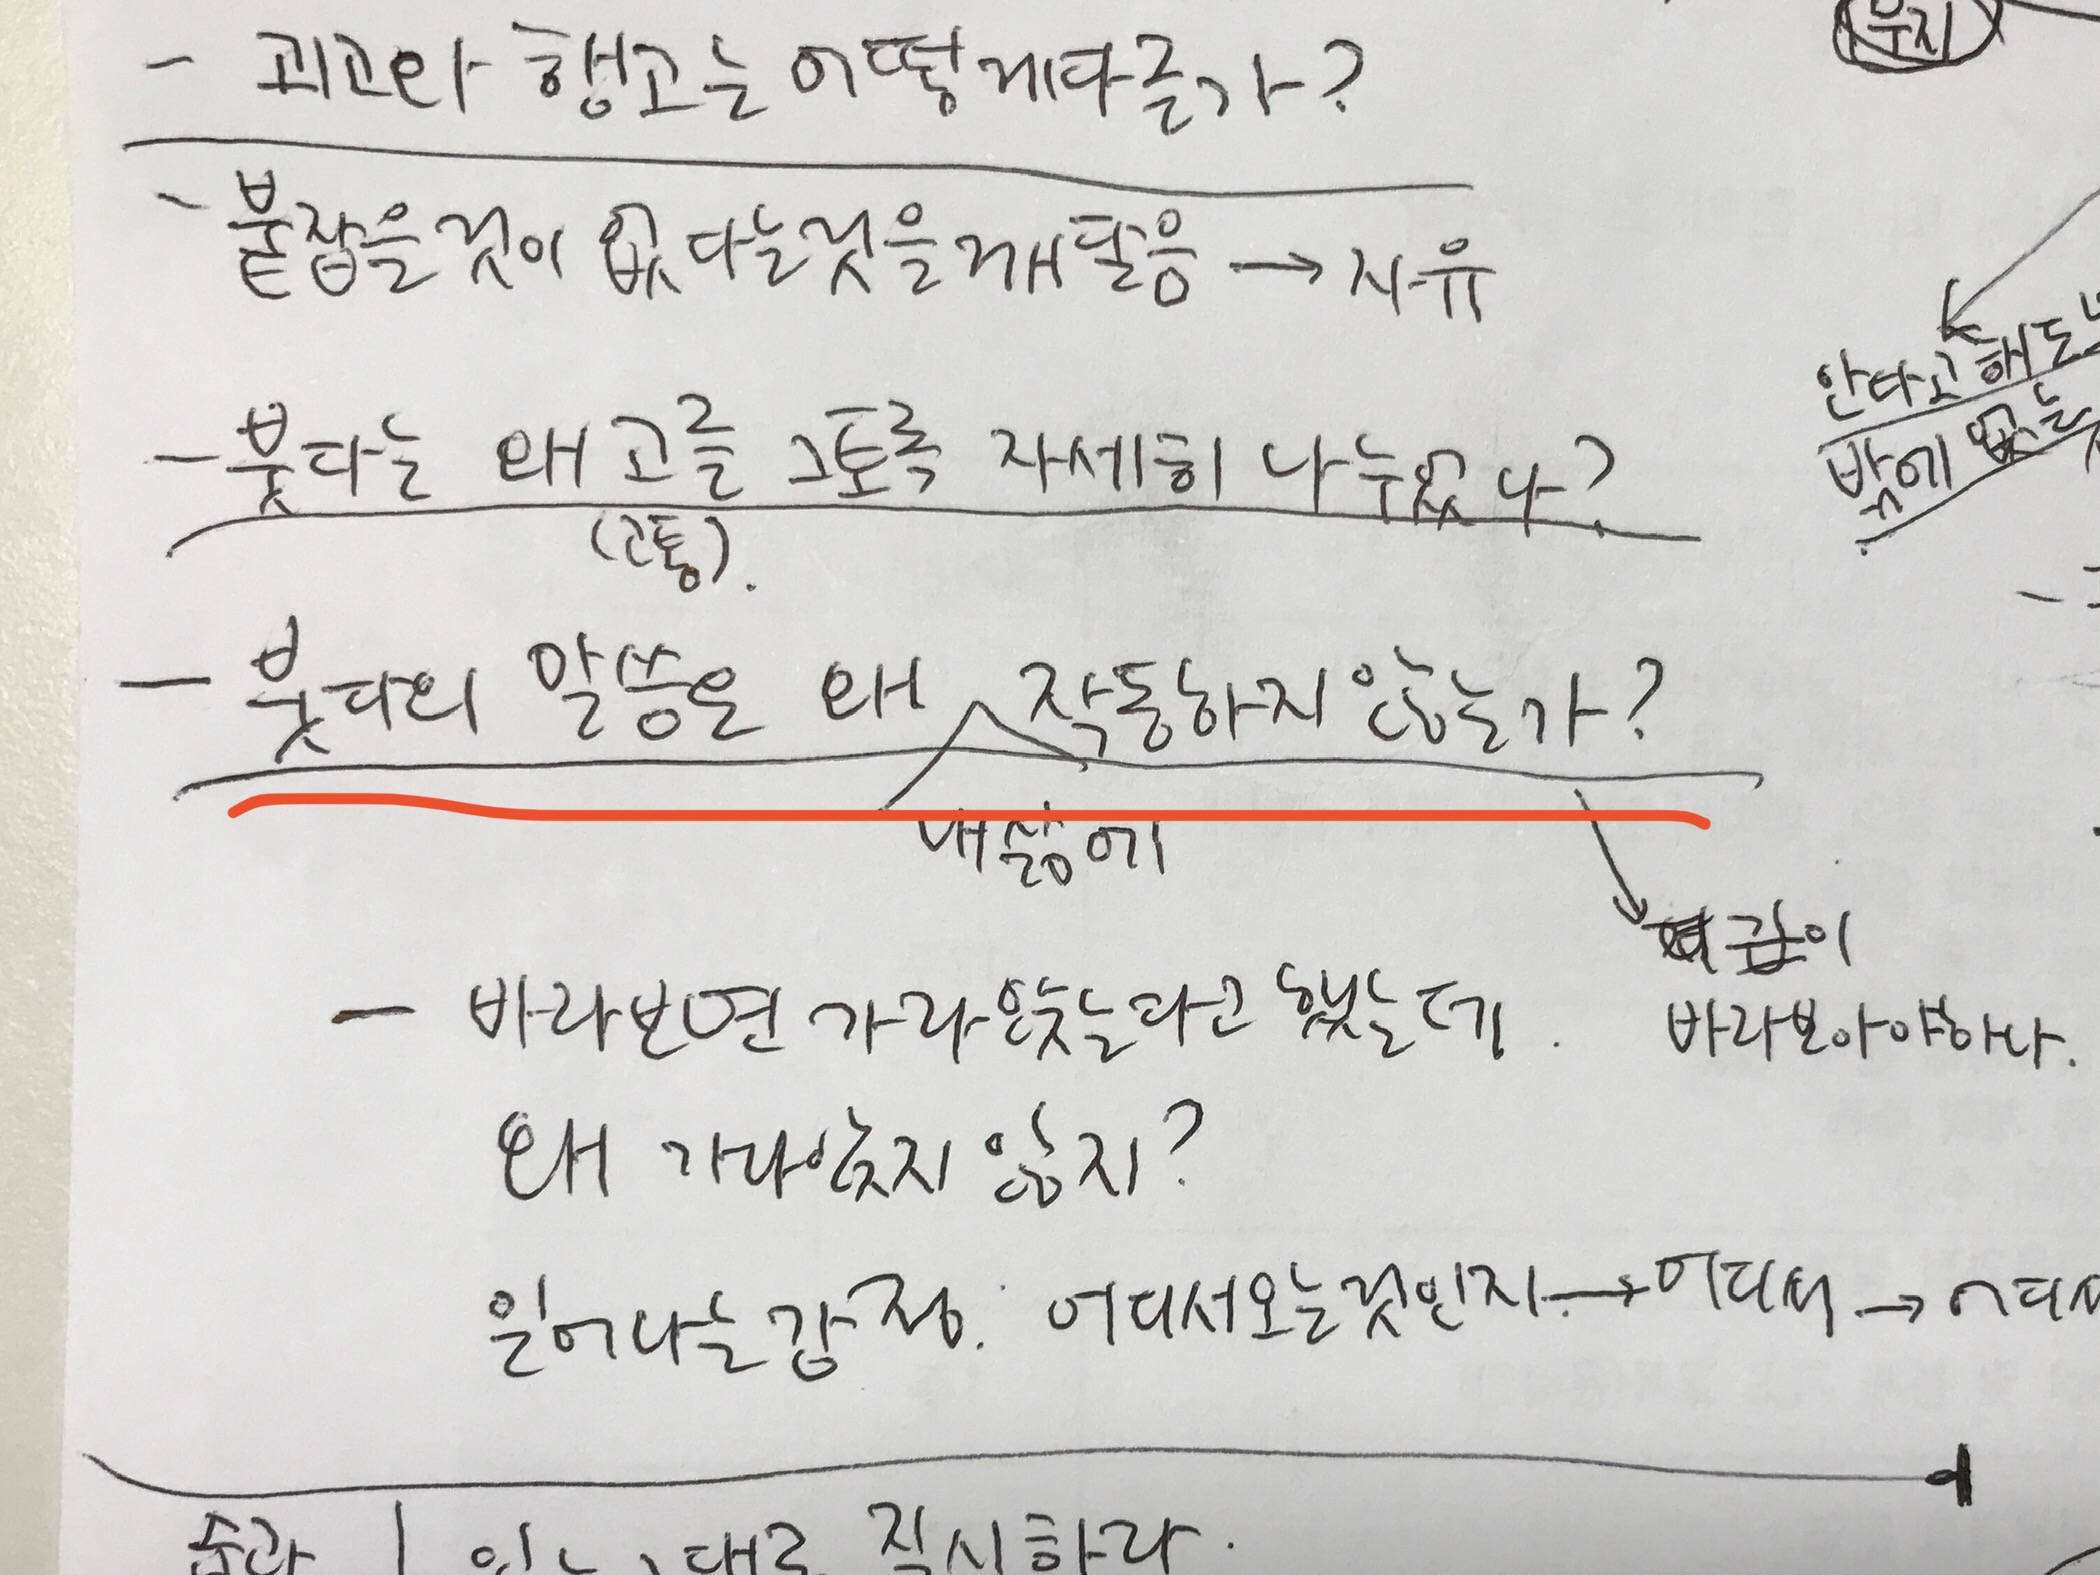 무지
- 괴고와 행고는 어떻게 다른가?
- 붙잡을 것이 없다는 것을 깨달음 → 자유
안다고 해도
밖에 없는
- 붓다는 왜 고를 그토록 자세히 나누었나?
(고통).
- 붓다의 말씀은 왜 작동하지 않는가?
내 삶에
깊이
바라보아야하나.
- 바라보면 가라앉는다고 했는데.
왜 가라앉지 않지?
일어나는 감정. 어디서 오는 것인지 → 어디서 → 어디서
순간 | 있는 그대로 직시하라.